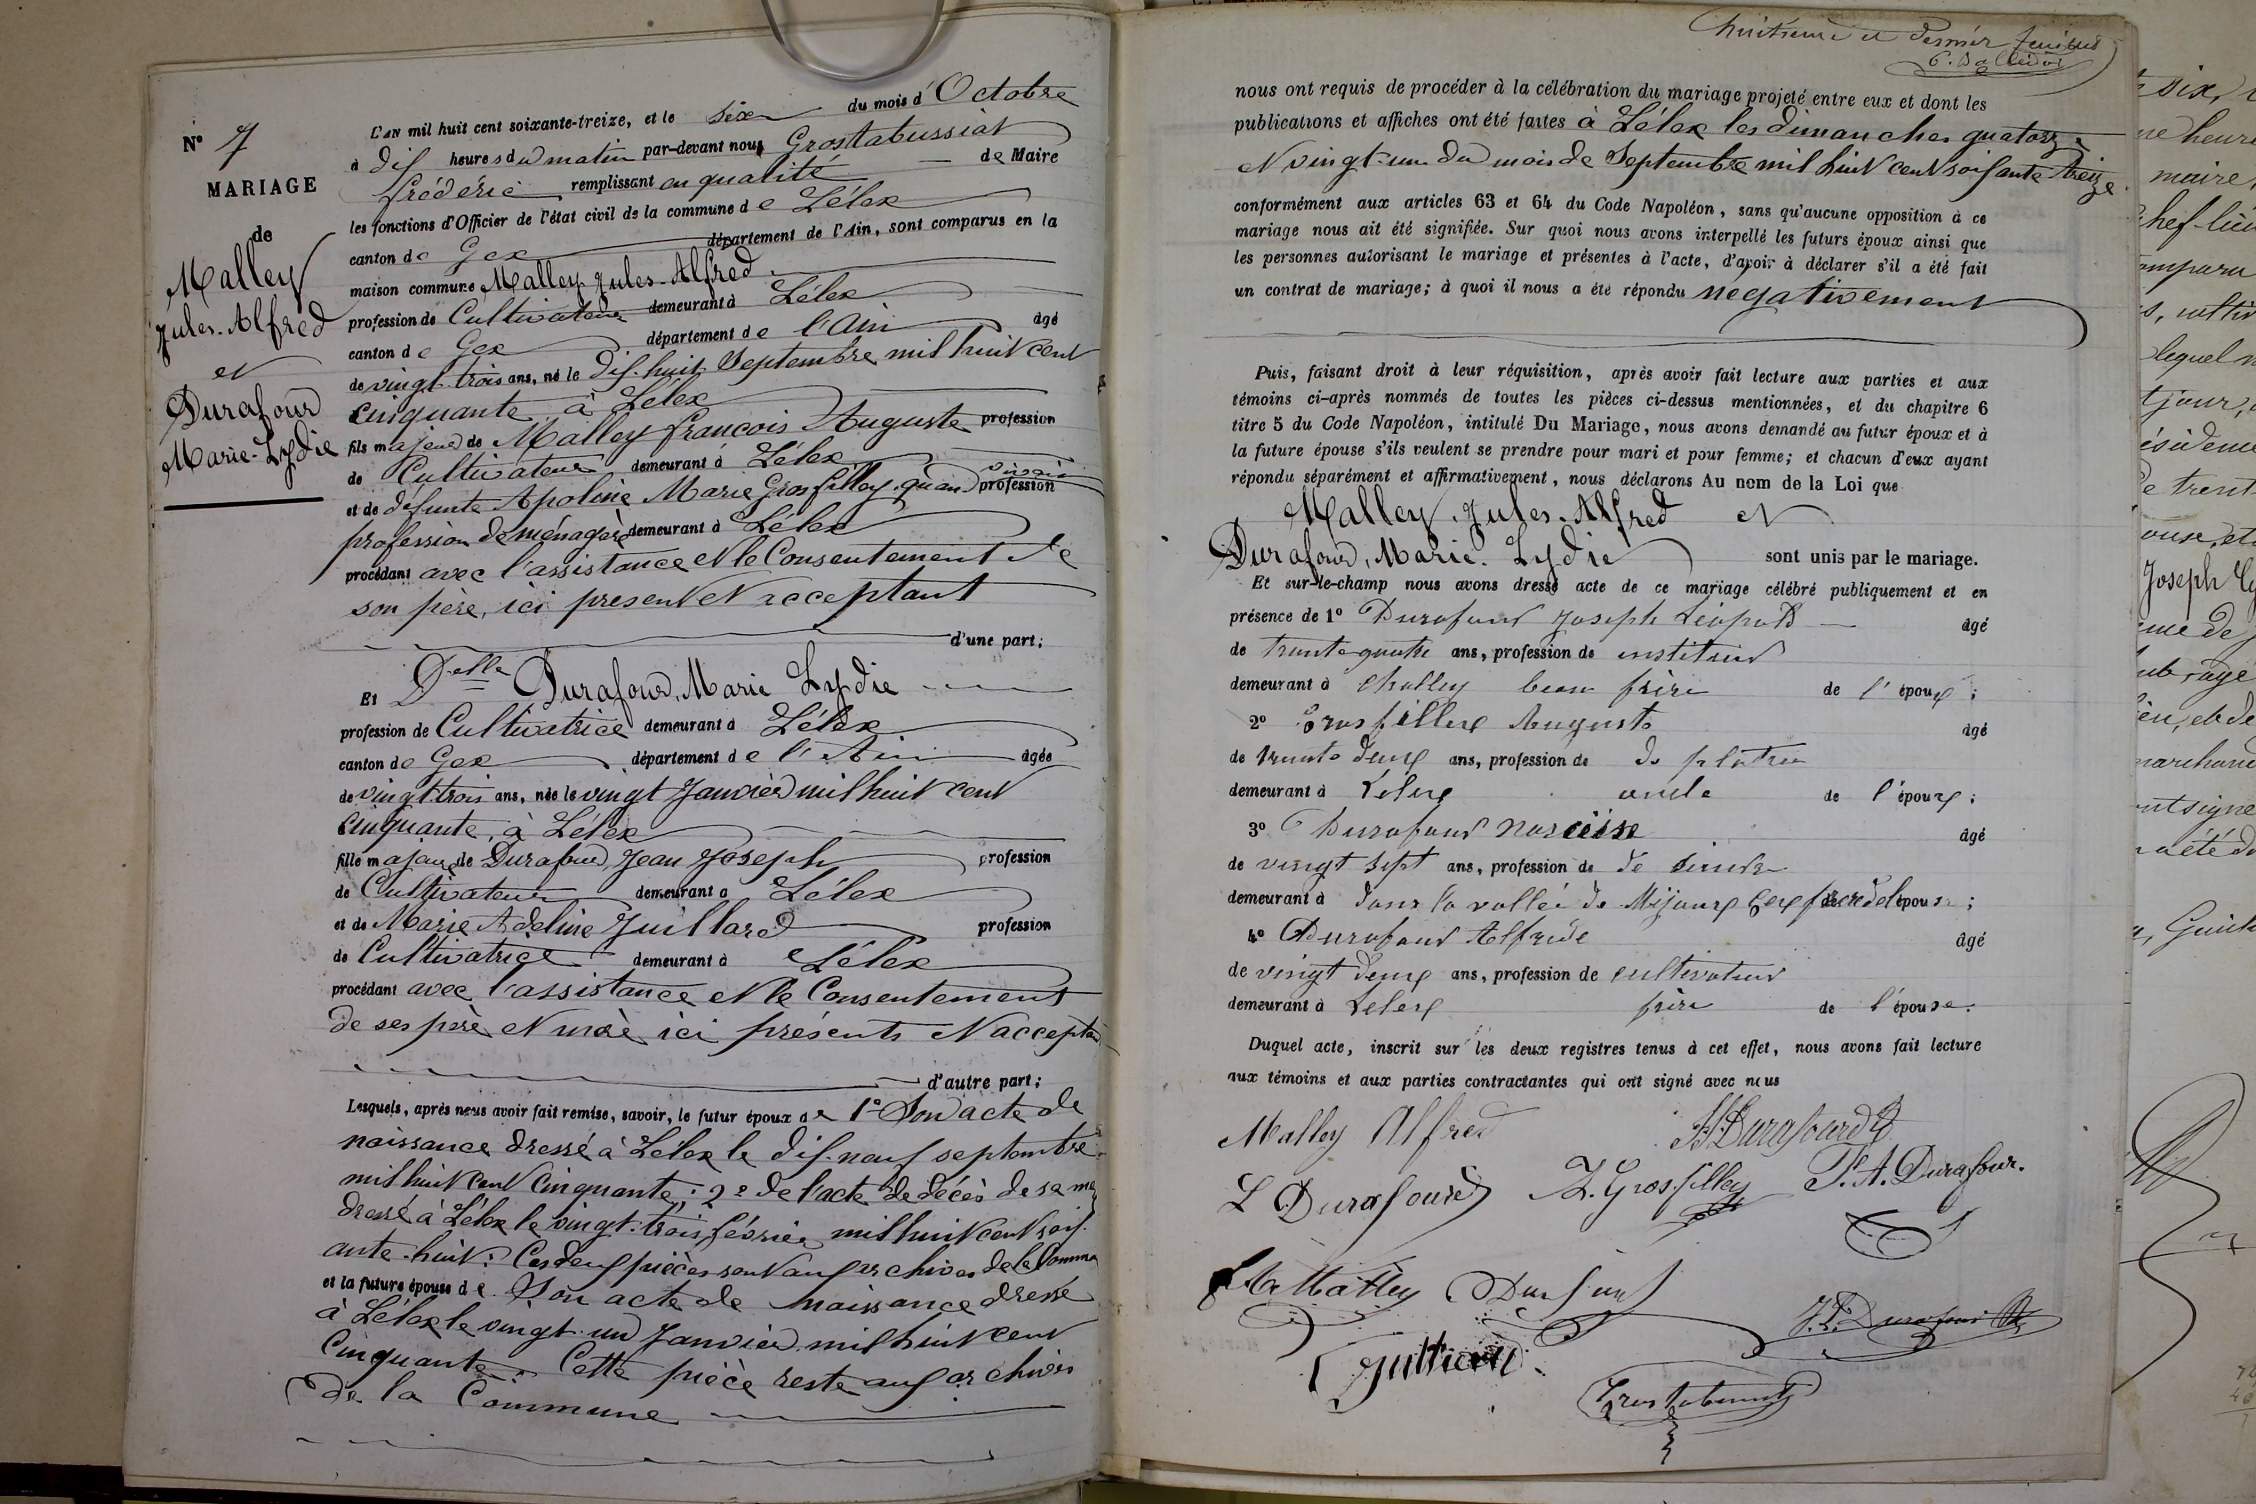 N° 7
MARIAGE
de
Malley
Jules-Alfred
et
Durafour
Marie-Lydie
L'an mil huit cent soixante-treize, et le six du mois d'Octobre
à dix heures du matin par-devant nous Grostabussiat
frédéric remplissant en qualité de Maire
les fonctions d'Officier de l'état civil de la commune de Lélex
canton de Gex département de l'Ain, sont comparus en la
maison commune Malley Jules-Alfred
profession de Cultivateur demeurant à Lélex
canton de Gex département de l'Ain âgé
de vingt-trois ans, né le dix-huit Septembre mil huit cent
cinquante à Lélex
fils majeur de Malley françois Auguste profession
de Cultivateur demeurant à Lélex
et de défunte Apoline Marie Grosfilley, quand vivait profession
profession de ménagère demeurant à Lélex
procédant avec l'assistance et le Consentement de
son père, ici présent et acceptant
d'une part;
Et Delle Durafour, Marie Lydie
profession de Cultivatrice demeurant à Lélex
canton de Gex département de l'Ain âgée
de vingt-trois ans, née le vingt Janvier mil huit cent
cinquante, à Lélex
fille majeure de Durafour, Jean Joseph profession
de Cultivateur demeurant à Lélex
et de Marie Adeline Juillard profession
de Cultivatrice demeurant à Lélex
procédant avec l'assistance et le Consentement
de ses père et mère ici présents et acceptant
d'autre part;
Lesquels, après nous avoir fait remise, savoir, le futur époux de 1° Son acte de
naissance dressé à Lélex le dix-neuf septembre
mil huit cent cinquante; 2° de l'acte de décès de sa mère
dressé à Lélex le vingt-trois février mil huit cent soix-
ante-huit: Ces deux pièces sont aux archives de la Comme
et la future épouse de Son acte de naissance dressé
à Lélex le vingt-un Janvier mil huit cent
Cinquante. Cette pièce reste aux archives
de la Commune
huitième et dernier feuillet
nous ont requis de procéder à la célébration du mariage projeté entre eux et dont les
publications et affiches ont été faites à Lélex les dimanches quatorze
et vingt-un du mois de Septembre mil huit cent soixante treize
conformément aux articles 63 et 64 du Code Napoléon, sans qu'aucune opposition à ce
mariage nous ait été signifiée. Sur quoi nous avons interpellé les futurs époux ainsi que
les personnes autorisant le mariage et présentes à l'acte, d'avoir à déclarer s'il a été fait
un contrat de mariage; à quoi il nous a été répondu négativement
Puis, faisant droit à leur réquisition, après avoir fait lecture aux parties et aux
témoins ci-après nommés de toutes les pièces ci-dessus mentionnées, et du chapitre 6
titre 5 du Code Napoléon, intitulé Du Mariage, nous avons demandé au futur époux et à
la future épouse s'ils veulent se prendre pour mari et pour femme; et chacun d'eux ayant
répondu séparément et affirmativement, nous déclarons Au nom de la Loi que
Malley, Jules-Alfred et
Durafour, Marie-Lydie sont unis par le mariage.
Et sur-le-champ nous avons dressé acte de ce mariage célébré publiquement et en
présence de 1° Durafour Joseph Léopold âgé
de trente quatre ans, profession de instituteur
demeurant à Challey beau frère de l'époux;
2° Grosfillex Auguste âgé
de trente deux ans, profession de de plâtrier
demeurant à Lélex oncle de l'époux;
3° Durafour Narcisse âgé
de vingt sept ans, profession de de
demeurant à dans la vallée de Mijoux Gex frère de l'épouse;
4° Durafour Alfride âgé
de vingt deux ans, profession de cultivateur
demeurant à Lelex frère de l'épouse.
Duquel acte, inscrit sur les deux registres tenus à cet effet, nous avons fait lecture
aux témoins et aux parties contractantes qui ont signé avec nous
Malley Alfred
L Durafour
Grosfilley
F. A. Durafour.
Malley